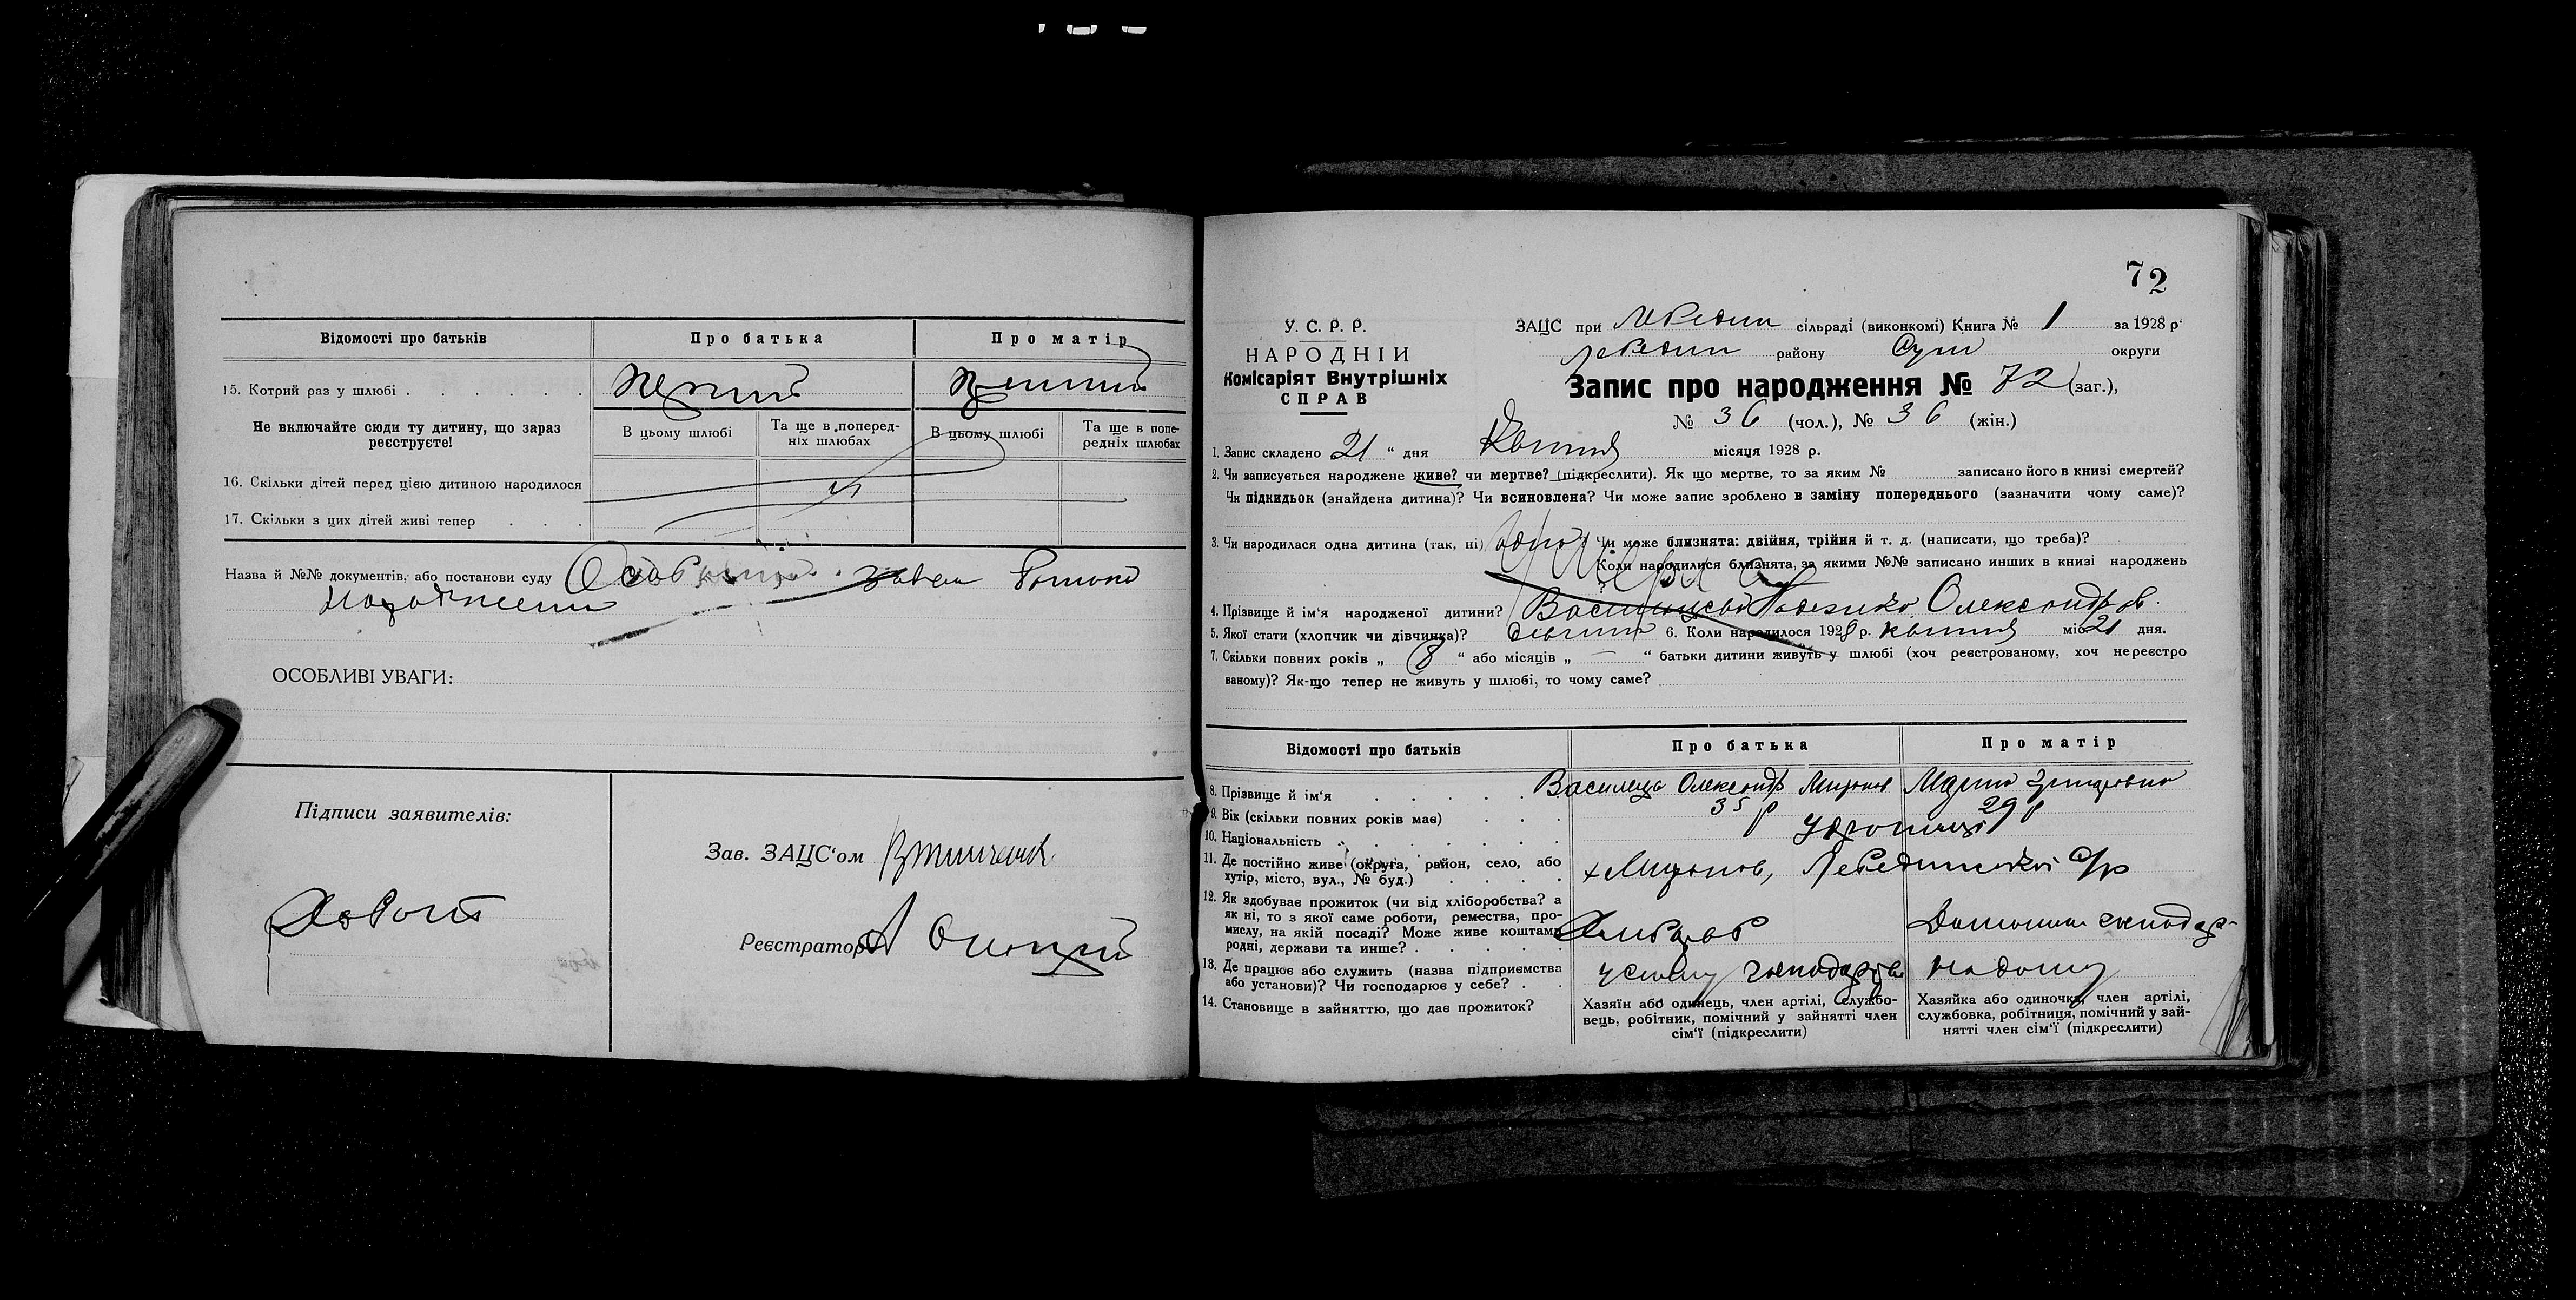 Відомості про батьків
Про батька
Про матір
15. Котрий раз у шлюбі
Перший
Перший
Не включайте сюди ту дитину, що зараз реєструєте!
В цьому шлюбі
Та ще в поперед-
ніх шлюбах
В цьому шлюбі
Та ще в попе-
редніх шлюбах
16. Скільки дітей перед цією дитиною народилося
17. Скільки з цих дітей живі тепер
Назва й №№ документів, або постанови суду
ОСОБЛИВІ УВАГИ:
Підписи заявителів:
Зав. ЗАЦС'ом
Реєстратор
72
У. С. Р. Р.
НАРОДНІЙ
Комісаріят Внутрішніх
СПРАВ
ЗАЦС при Лебедин сільраді (виконкомі) Книга № 1 за 1928 р.
Лебедин району Сум округи
Запис про народження № 72 (заг.),
№ 36 (чол.), № 36 (жін.)
1. Запис складено 21 " дня Квітня місяця 1928 р.
2. Чи записується народжене живе? чи мертве? (підкреслити). Як що мертве, то за яким № записано його в книзі смертей?
Чи підкидьок (знайдена дитина)? Чи всиновлена? Чи може запис зроблено в заміну попереднього (зазначити чому саме)?
3. Чи народилася одна дитина (так, ні) одна Чи може близнята: двійня, трійня й т. д. (написати, що треба)?
Коли народилися близнята, за якими №№ записано инших в книзі народжень
?
4. Прізвище й ім'я народженої дитини? Олександров.
5. Якої стати (хлопчик чи дівчинка)? дівчина 6. Коли народилося 1928 р. квітня міс. 21 дня.
7. Скільки повних років „ 8 " або місяців „ — " батьки дитини живуть у шлюбі (хоч реєстрованому, хоч нереєстро
ваному)? Як-що тепер не живуть у шлюбі, то чому саме?
Відомості про батьків
Про батька
Про матір
8. Прізвище й ім'я
Олександр Миронов
Марія Григоровна
9. Вік (скільки повних років має)
35 р
29 р
10. Національність
Українці
11. Де постійно живе (округа, район, село, або
хутір, місто, вул., № буд.)
х Миронов, Лебединської с/р
12. Як здобуває прожиток (чи від хліборобства? а
як ні, то з якої саме роботи, ремества, про-
мислу, на якій посаді? Може живе коштами
родні, держави та инше?
Хлібороб
Домашня господар-
13. Де працює або служить (назва підприємства
або установи)? Чи господарює у себе?
у своїму господарстві
на дому
14. Становище в зайняттю, що дає прожиток?
Хазяїн або одинець, член артілі, службо-
вець, робітник, помічний у зайнятті член
сім'ї (підкреслити)
Хазяйка або одиночка, член артілі,
службовка, робітниця, помічний у зай-
нятті член сім'ї (підкреслити)